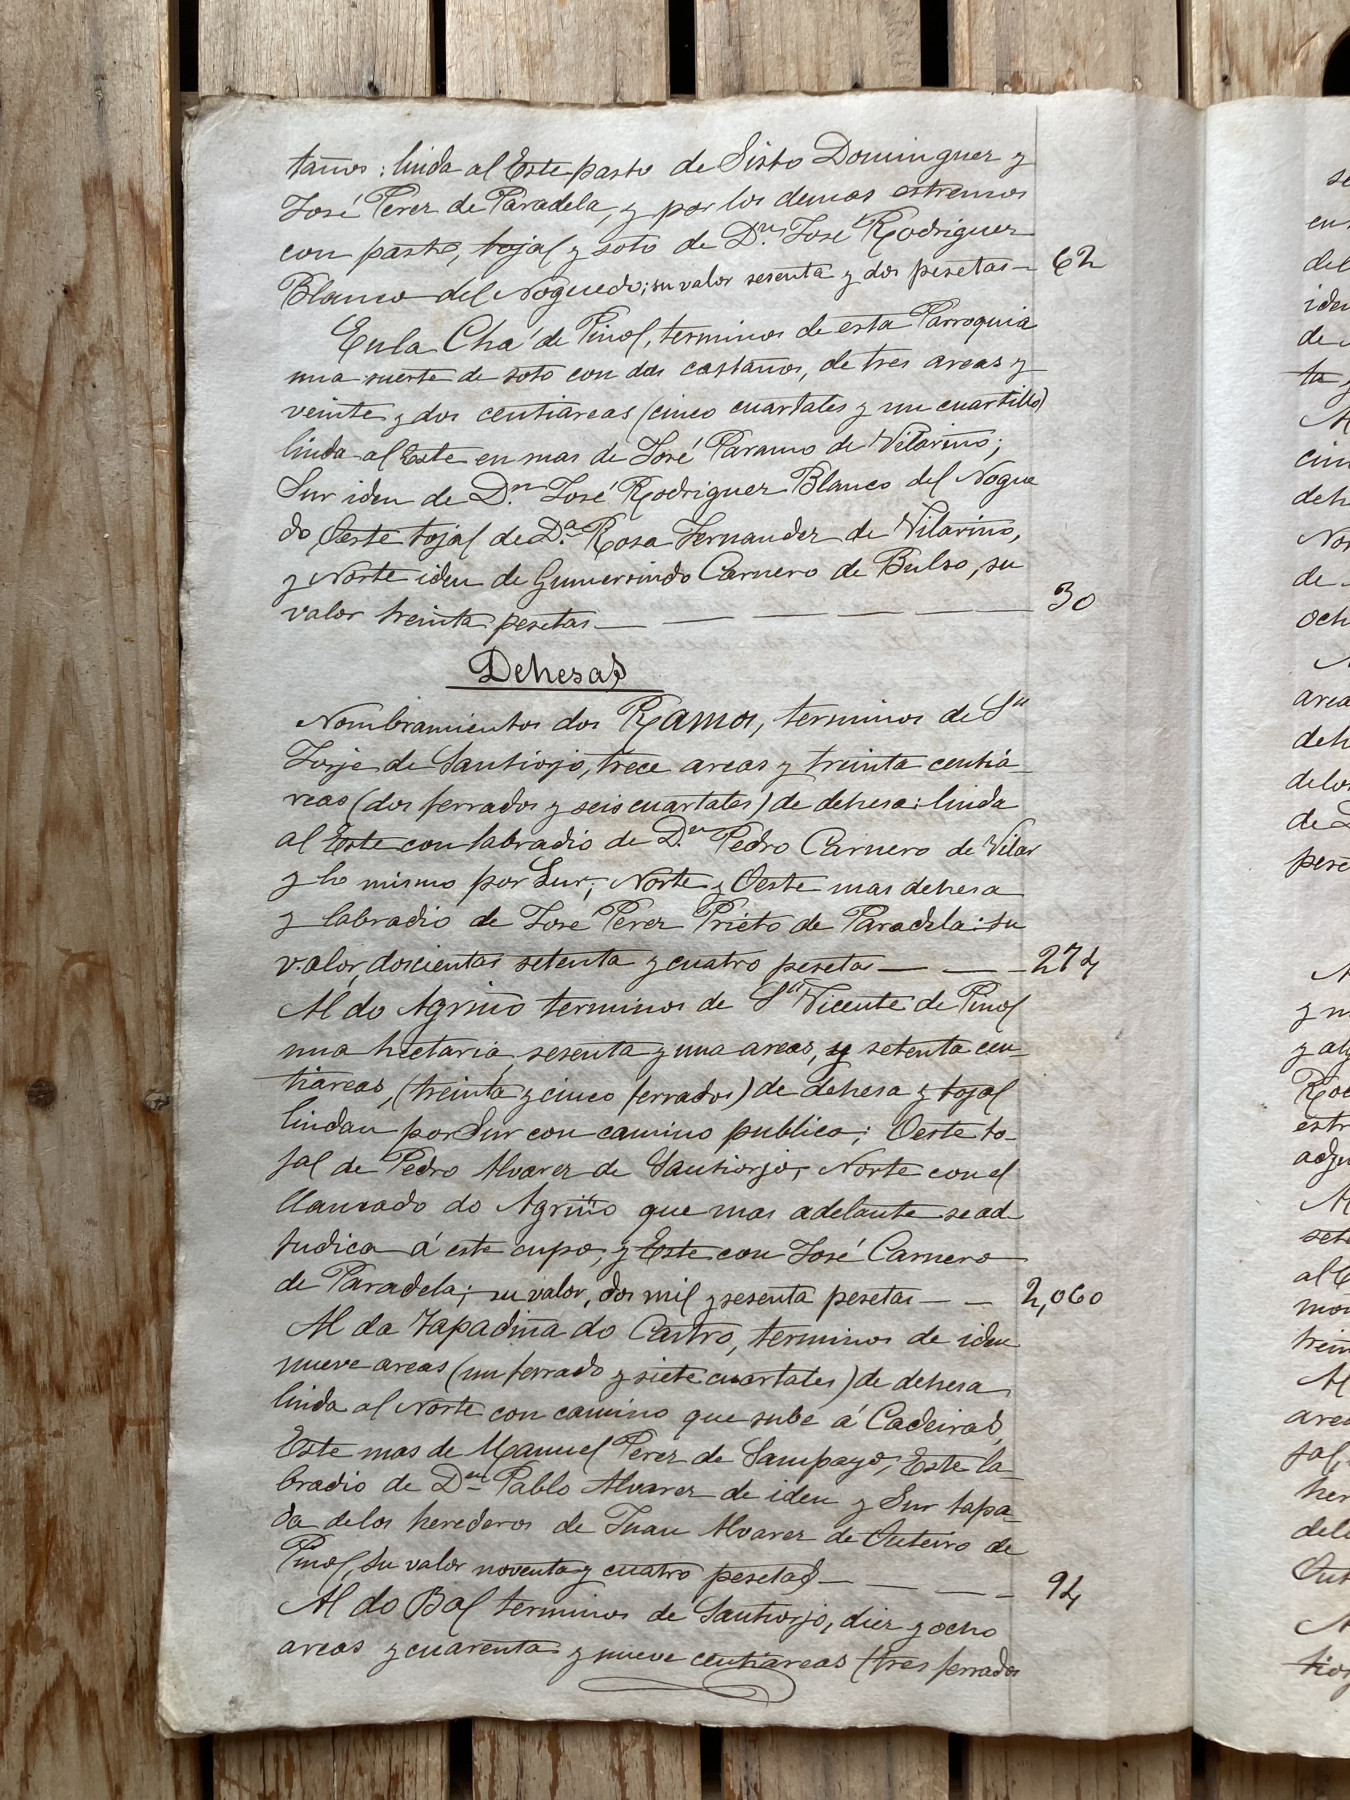 taños: linda al Este pasto de Sisto Dominguez y
José Perez de Paradela, y por los demas estremos
con pasto, tojal y soto de D.n José Rodriguez
Blanco del Noguedo; su valor sesenta y dos pesetas — 62
En la Chá de Pinol, terminos de esta Parroquia
una suerte de soto con dos castaños, de tres areas y
veinte y dos centiareas (cinco cuartales y un cuartillo)
linda al Este en mas de José Paramo de Vilariño;
Sur iden de D.n José Rodriguez Blanco del Nogue
do, Oeste tojal de D.a Rosa Fernandez de Vilariño,
y Norte iden de Gumersindo Carnero de Bulso, su
valor treinta pesetas — — — — — — 30
Dehesas
Nombramientos dos Ramos, terminos de Sn
Jorje de Santiorjo, trece areas y treinta centiá-
reas (dos ferrados y seis cuartales) de dehesa: linda
al Este con labradio de D.n Pedro Carnero de Vilar
y lo mismo por Sur; Norte y Oeste mas dehesa
y labradio de José Perez Prieto de Paradela: su
valor, doscientas setenta y cuatro pesetas — — — 274
Al do Agriño terminos de Sn Vicente de Pinol
una hectaria, sesenta y una areas, y setenta cen-
tiareas, (treinta y cinco ferrados) de dehesa y tojal
lindan por Sur con camino publico; Oeste to-
jal de Pedro Alvarez de Santiorjo; Norte con el
llamado do Agriño que mas adelante se ad
judica á este cupo, y Este con José Carnero
de Paradela; su valor, dos mil y sesenta pesetas — — 2,060
Al da Tapadiña do Castro, terminos de iden
nueve areas (un ferrado y siete cuartales) de dehesa
linda al Norte con camino que sube á Cadeiras,
Este mas de Manuel Perez de Sampayo; Este la-
bradio de D.n Pablo Alvarez de iden y Sur tapa-
da de los herederos de Juan Alvarez de Outeiro de
Pinol, su valor noventa y cuatro pesetas — — — — 94
Al do Bal terminos de Santiorjo, diez y ocho
areas y cuarenta y nueve centiareas (tres ferrados